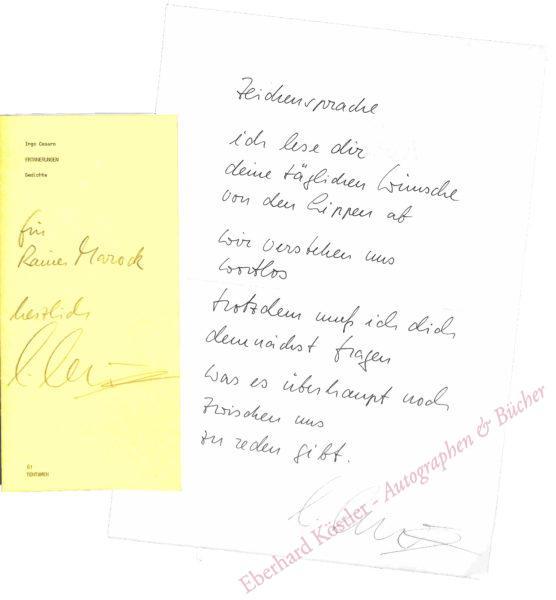 Ingo Cesaro
ERINNERUNGEN
Gedichte
für
Rainer Marock
herzlich
61
TENTAMEN
Zeichensprache
ich lese dir
deine täglichen Wünsche
von den Lippen ab
wir verstehen uns
wortlos
trotzdem muß ich dich
demnächst fragen
was es überhaupt noch
zwischen uns
zu reden gibt.
Eberhard Köstler - Autographen & Bücher